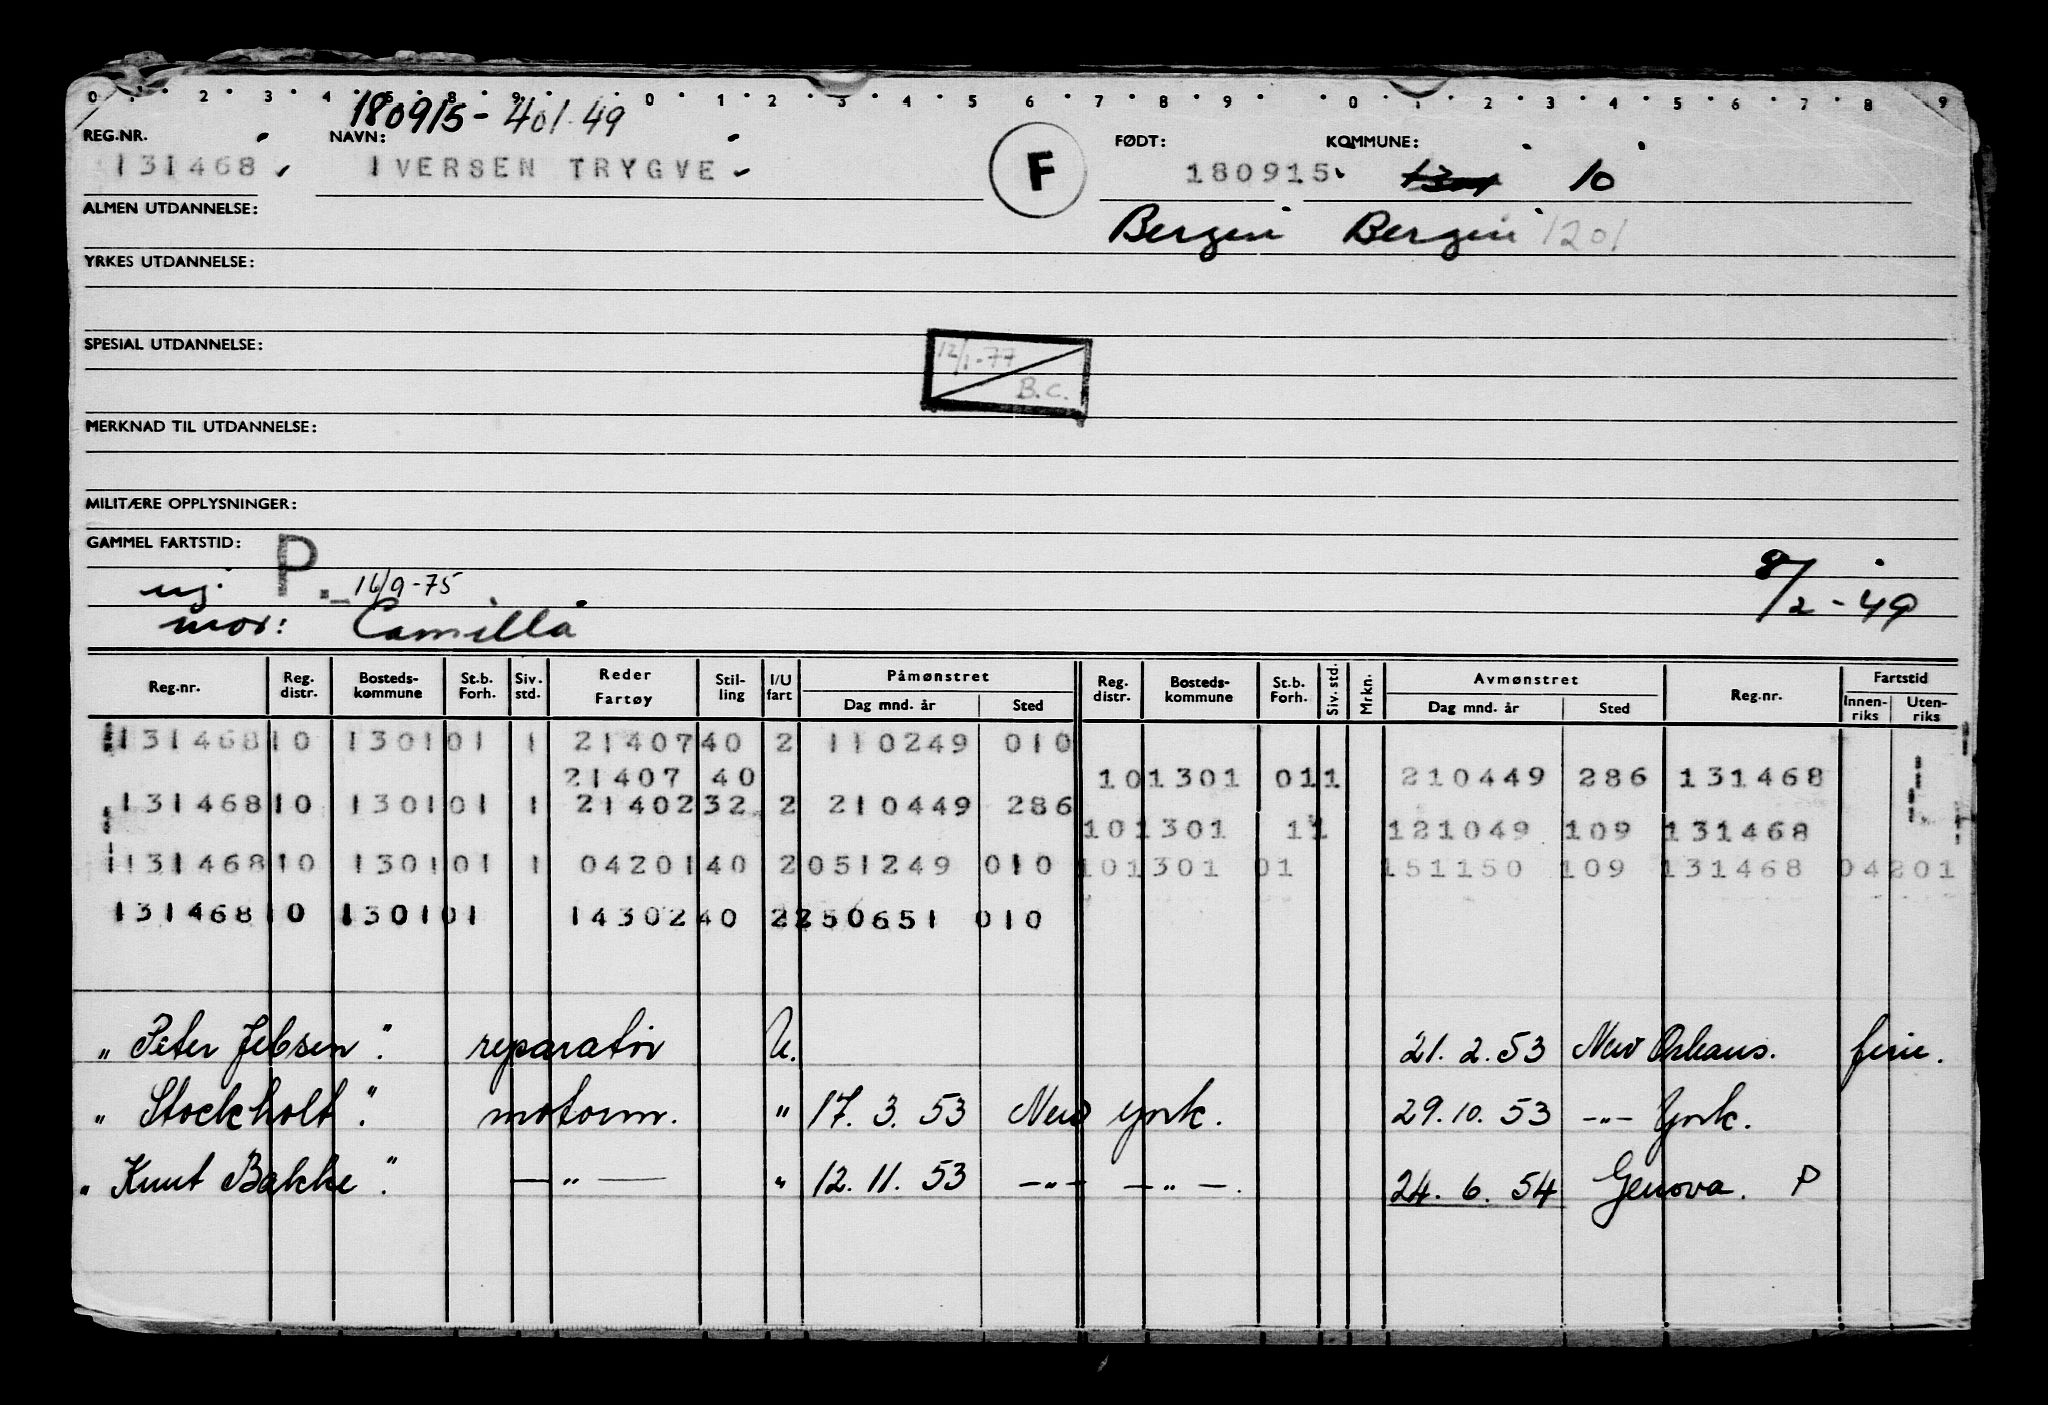 0 2 3 4 5 8 9 0 1 2 3 4 5 6 7 8 9 0 1 2 3 4 5 6 7 8 9
180915-401.49
REG.NR. NAVN: FØDT: KOMMUNE:
131468 IVERSEN TRYGVE F 180915 10
ALMEN UTDANNELSE: Bergen Bergen 1201
YRKES UTDANNELSE:
SPESIAL UTDANNELSE:
12/1-77
B.C.
MERKNAD TIL UTDANNELSE:
MILITÆRE OPPLYSNINGER:
GAMMEL FARTSTID: P.
ug. 16/9-75 8/2-49
mor: Camilla
Reg.nr. Reg. distr. Bosteds-kommune St.b. Forh. Siv. std. Reder Fartøy Stil-ling I/U fart Påmønstret Dag mnd. år Sted Reg. distr. Bosteds-kommune St.b. Forh. Siv. std. Mrkn. Avmønstret Dag mnd. år Sted Reg.nr. Fartstid Innen-riks Uten-riks
131468 10 1301 01 1 21407 40 2 110249 010
21407 40 10 1301 01 1 210449 286 131468
131468 10 1301 01 1 21402 32 2 210449 286
10 1301 1 1 121049 109 131468
131468 10 1301 01 1 04201 40 2 051249 010 10 1301 01 151150 109 131468 04201
131468 10 1301 01 14302 40 2 250651 010
„ Peter Jebsen". reparatør U. 21.2.53 New Orleans. ferie.
„ Stockholt". motorm. " 17.3.53 New York. 29.10.53 -"- York.
„ Knut Bakke". —"— " 12.11.53 -"- -"-. 24.6.54 Genova. P